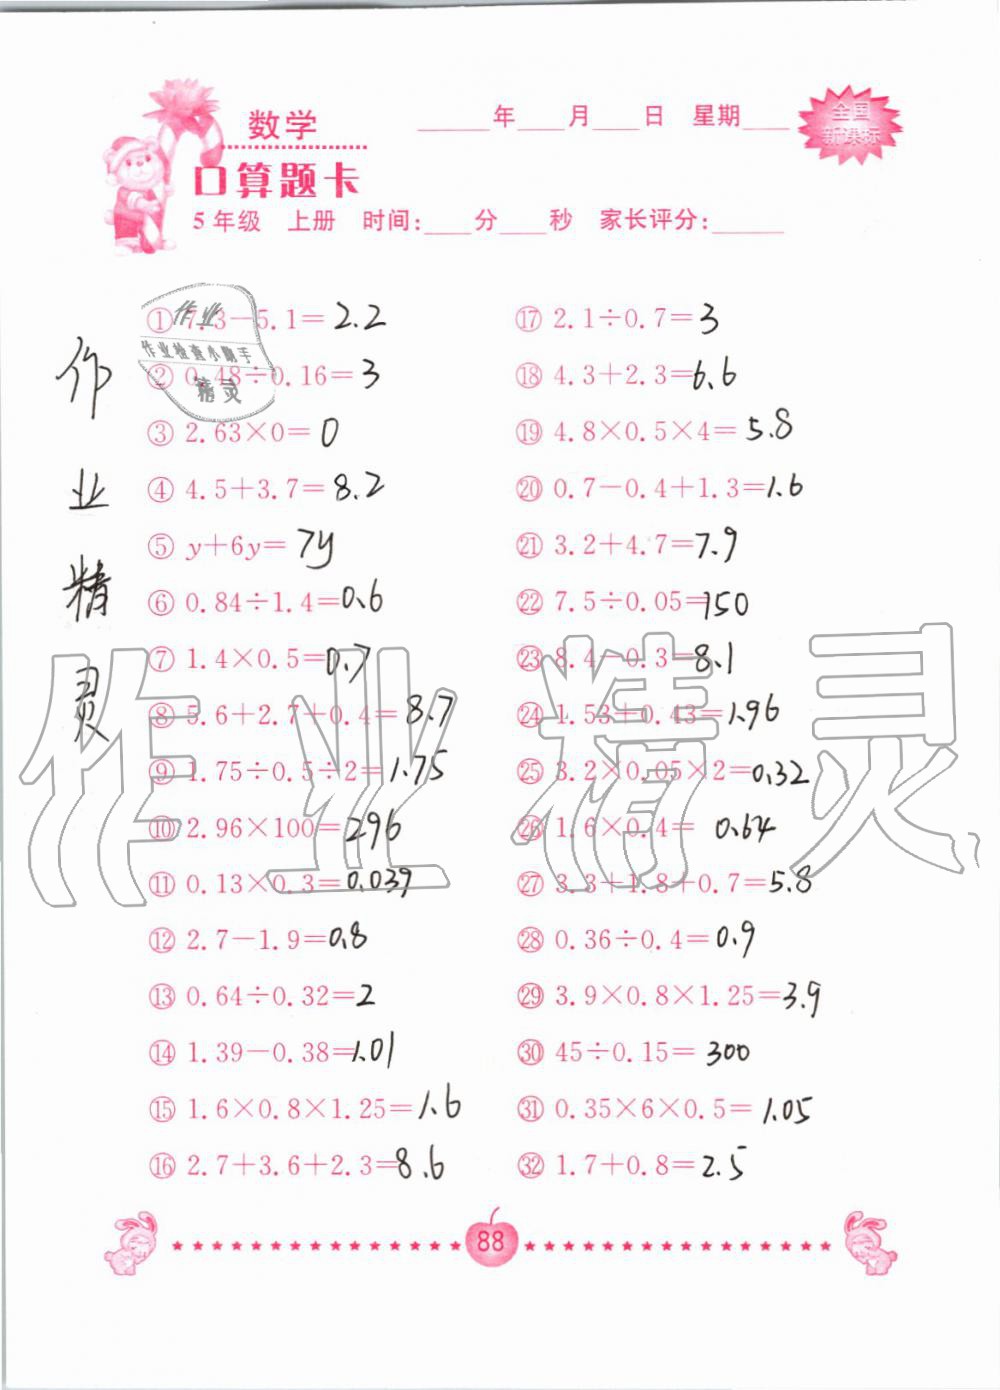 数学
____年____月____日 星期____
全国
新课标
口算题卡
5年级 上册 时间:____分____秒 家长评分:______
作业
作业检查小助手
精灵
作业精灵
① 7.3-5.1=2.2
② 0.48÷0.16=3
③ 2.63×0=0
④ 4.5+3.7=8.2
⑤ y+6y=7y
⑥ 0.84÷1.4=0.6
⑦ 1.4×0.5=0.7
⑧ 5.6+2.7+0.4=8.7
⑨ 1.75÷0.5÷2=1.75
⑩ 2.96×100=296
⑪ 0.13×0.3=0.039
⑫ 2.7-1.9=0.8
⑬ 0.64÷0.32=2
⑭ 1.39-0.38=1.01
⑮ 1.6×0.8×1.25=1.6
⑯ 2.7+3.6+2.3=8.6
⑰ 2.1÷0.7=3
⑱ 4.3+2.3=6.6
⑲ 4.8×0.5×4=5.8
⑳ 0.7-0.4+1.3=1.6
㉑ 3.2+4.7=7.9
㉒ 7.5÷0.05=150
㉓ 8.4-0.3=8.1
㉔ 1.53+0.43=1.96
㉕ 3.2×0.05×2=0.32
㉖ 1.6×0.4=0.64
㉗ 3.3+1.8+0.7=5.8
㉘ 0.36÷0.4=0.9
㉙ 3.9×0.8×1.25=3.9
㉚ 45÷0.15=300
㉛ 0.35×6×0.5=1.05
㉜ 1.7+0.8=2.5
作业精灵
88